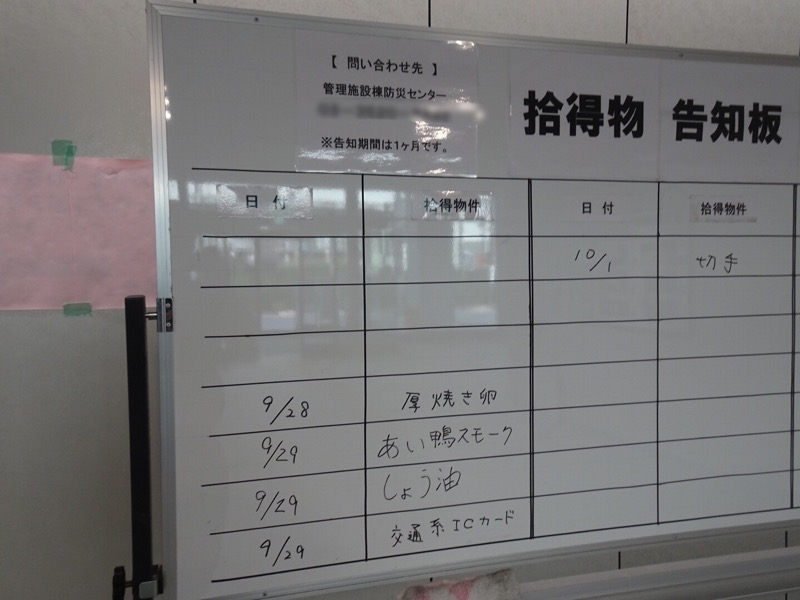 【 問い合わせ先 】
管理施設棟防災センター
※告知期間は1ヶ月です。
拾得物 告知板
日付 拾得物件 日付 拾得物件
10/1 切手
9/28 厚焼き卵
9/29 あい鴨スモーク
9/29 しょう油
9/29 交通系ICカード